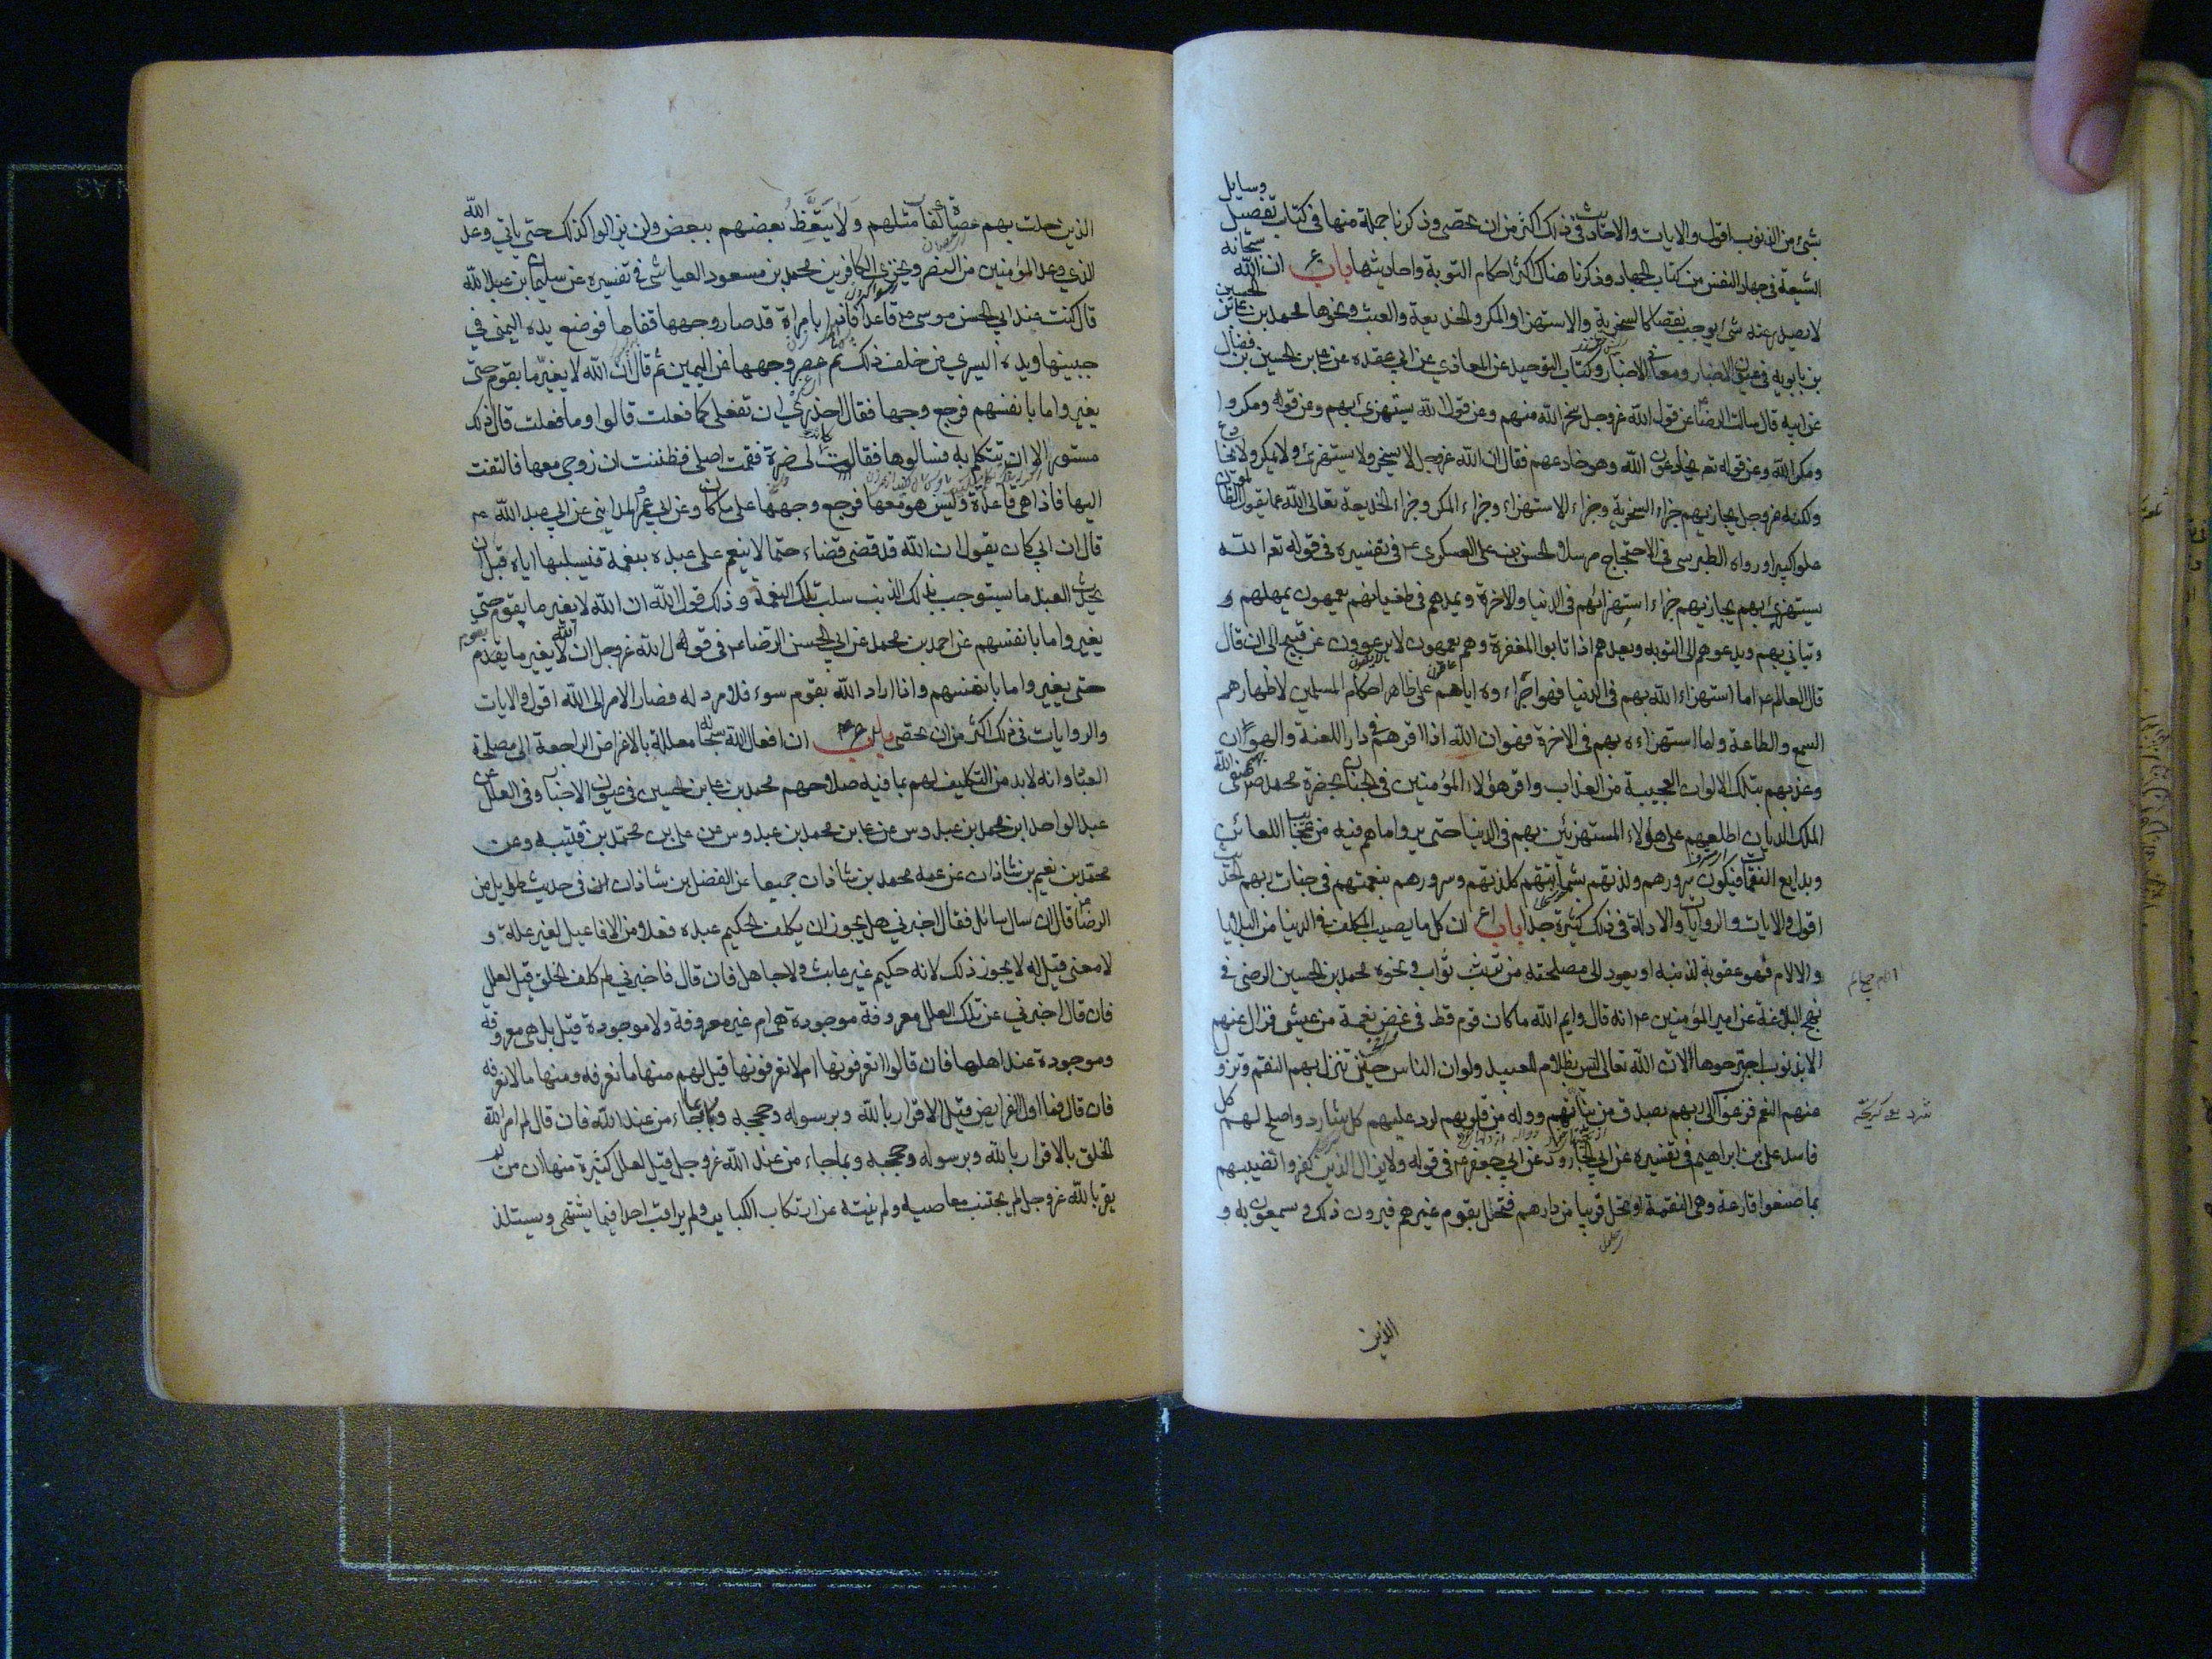 وسايل
بشئ من الذنوب اقول والايات والاحاديث في ذلك اكثر من ان تحصى وذكرنا جملة منها في كتاب تفصيل
الشيعة في جهاد النفس من كتاب الجهاد وذكرنا هناك اكثر احكام التوبة واحاديثها باب ان الله سبحانه
لا يصدر عنه شئ يوجب نقصا كالسخرية والاستهزاء والمكر والخديعة والعبث ونحوها محمد بن علي بن الحسين
بن بابويه في عيون الاخبار ومعاني الاخبار وكتاب التوحيد عن المعاذي عن ابن عقده عن علي بن الحسين بن فضال
عن ابيه قال سالت الرضا عن قول الله عزوجل سخر الله منهم وعن قول الله يستهزئ بهم وعن قوله ومكروا
ومكر الله وعن قوله تع يخادعون الله وهو خادعهم فقال ان الله عزوجل لا يسخر ولا يستهزئ ولا يمكر ولا يخادع
ولكنه عزوجل يجازيهم جزاء السخرية وجزاء الاستهزاء وجزاء المكر وجزاء الخديعة تعالى الله عما يقول الظالمون
علوا كبيرا ورواه الطبرسي في الاحتجاج مرسلا الحسن بن علي العسكري ع في تفسيره في قوله تع الله
يستهزئ بهم يجازيهم جزاء استهزائهم في الدنيا والاخرة ويمدهم في طغيانهم يعمهون يمهلهم و
يتاني بهم ويدعوهم الى التوبه ويعدهم اذا تابوا المغفرة وهم يعمهون لا يرعوون عن قبيح الى ان قال
قال العالم ع اما استهزاء الله بهم في الدنيا فهو اجراءه اياهم على ظاهر احكام المسلمين لاظهارهم
السمع والطاعة واما استهزاءه بهم في الاخرة فهو ان الله اذا اقرهم في دار اللعنة والهوان
وعذبهم بتلك الالوان العجيبة من العذاب واقر هؤلاء المؤمنين في الجنان بحضرة محمد صفي الله
الملك الديان اطلعهم على هؤلاء المستهزئين بهم في الدنيا حتى يروا ما هم فيه من عجائب اللعائن
وبدايع النقمات فيكون سرورهم ولذتهم بشماتتهم كلذتهم وسرورهم بنعمتهم في جنات ربهم الحديث
اقول والايات والروايات والادلة في ذلك كثيرة جدا باب ان كل ما يصيب المكلف في الدنيا من البلايا
والالام فهو عقوبة لذنبه او يعود الى مصلحته من ثواب ونحوه محمد بن الحسين الرضي في
نهج البلاغة عن امير المؤمنين ع انه قال وايم الله ما كان قوم قط في غض نعمة من عيش فزال عنهم
الا بذنوب اجترحوها لان الله تعالى ليس بظلام للعبيد ولو ان الناس حين تنزل بهم النقم وتزول
عنهم النعم فزعوا الى ربهم بصدق من نياتهم ووله من قلوبهم لرد عليهم كل شارد واصلح لهم كل
شرد
فاسد علي بن ابراهيم في تفسيره عن ابي الجارود عن ابي جعفر ع في قوله ولا يزال الذين كفروا تصيبهم
بما صنعوا قارعة وهي النقمة او تحل قريبا من دارهم فتحل بقوم غيرهم فيرون ذلك ويسمعون به و
الذين
الذين حلت بهم عصاة كفار مثلهم ولا يتعظ بعضهم ببعض ولن يزالوا كذلك حتى ياتي وعد الله
الذي وعد المؤمنين من النصر ويخزي الكافرين محمد بن مسعود العياشي في تفسيره عن سليمان بن عبد الله
قال كنت عند ابي الحسن موسى ع قاعدا فاتي بامراة قد صار وجهها قفاها فوضع يده اليمنى في
جبينها ويده اليسرى من خلف ذلك ثم عصر وجهها عن اليمين ثم قال ان الله لا يغير ما بقوم حتى
يغيروا ما بانفسهم فرجع وجهها فقال احذري ان تفعلي كما فعلت قالوا وما فعلت قال ذلك
مستور الا ان تتكلم به فسالوها فقالت كانت لي ضرة فقمت اصلي فظننت ان زوجي معها فالتفت
اليها فاذا هي قاعدة وليس هو معها فرجع وجهها على ما كان وعن ابي عمرو المدايني عن ابي عبد الله ع
قال ان ابي كان يقول ان الله قد قضى قضاء حتما لا ينعم على عبده بنعمة فيسلبها اياه قبل ان
يحدث العبد ما يستوجب بذلك الذنب سلب تلك النعمة وذلك قول الله ان الله لا يغير ما بقوم حتى
يغيروا ما بانفسهم عن احمد بن محمد عن ابي الحسن الرضا ع في قول الله عزوجل ان الله لا يغير ما بقوم
حتى يغيروا ما بانفسهم واذا اراد الله بقوم سوء فلا مرد له فصار الامر الى الله اقول والايات
والروايات في ذلك اكثر من ان تحصى باب ان افعال الله سبحانه معللة بالاغراض الراجعة الى مصلحة
العباد وانه لا بد من التكليف لهم بما فيه صلاحهم محمد بن علي بن الحسين في عيون الاخبار وفي العلل عن
عبد الواحد ابن محمد بن عبدوس عن علي بن محمد بن قتيبه وعن
محمد بن نعيم بن شاذان عن عمه محمد بن شاذان جميعا عن الفضل بن شاذان في حديث طويل عن
الرضا قال ان سال سائل فقال اخبرني هل يجوز ان يكلف الحكيم عبده فعلا من الافاعيل لغير علة و
لا معنى قيل له لا يجوز ذلك لانه حكيم غير عابث ولا جاهل فان قال فاخبرني لم كلف الخلق قيل لعلل
فان قال اخبرني عن تلك العلل معروفة موجودة هي ام غير معروفة ولا موجودة قيل بل هي معروفة
وموجودة عند اهلها فان قالوا تعرفونها ام لا تعرفونها قيل لهم منها ما نعرفه ومنها ما لا نعرفه
فان قال فما اول الفرايض قيل الاقرار بالله وبرسوله وحججه وبما جاء من عند الله فان قال لم امر الله
الخلق بالاقرار بالله وبرسوله وحججه وبما جاء من عند الله عزوجل قيل لعلل كثيرة منها ان من لم
يقر بالله عزوجل لم يجتنب معاصيه ولم ينته عن ارتكاب الكباير ولم يراقب احدا فيما يشتهي ويستلذ